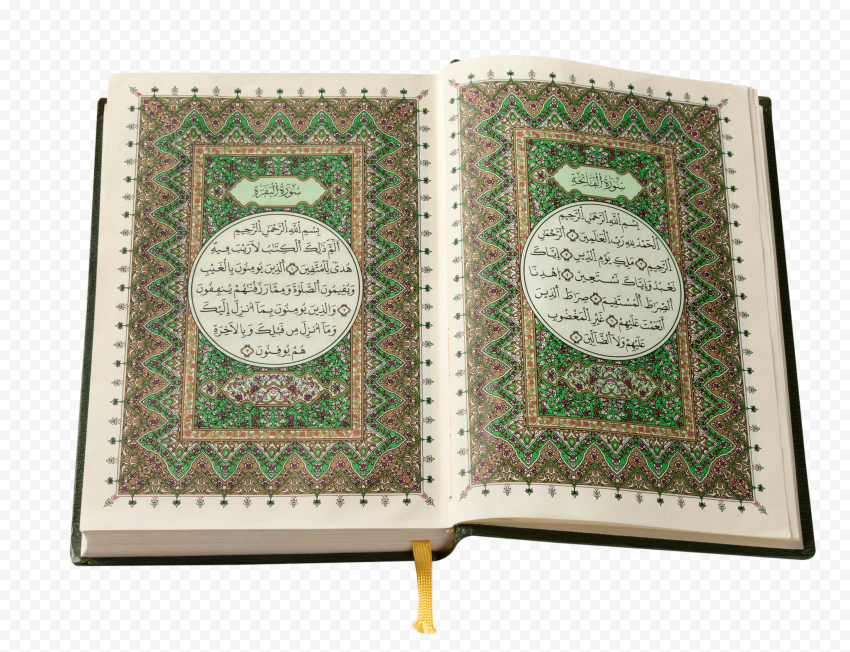 سُورَةُ الْفَاتِحَةِ
بِسْمِ اللَّهِ الرَّحْمَٰنِ الرَّحِيمِ
الْحَمْدُ لِلَّهِ رَبِّ الْعَٰلَمِينَ ۝ الرَّحْمَٰنِ
الرَّحِيمِ ۝ مَلِكِ يَوْمِ الدِّينِ ۝ إِيَّاكَ
نَعْبُدُ وَإِيَّاكَ نَسْتَعِينُ ۝ اهْدِنَا
الصِّرَٰطَ الْمُسْتَقِيمَ ۝ صِرَٰطَ الَّذِينَ
أَنْعَمْتَ عَلَيْهِمْ ۝ غَيْرِ الْمَغْضُوبِ
عَلَيْهِمْ وَلَا الضَّآلِّينَ ۝
سُورَةُ الْبَقَرَةِ
بِسْمِ اللَّهِ الرَّحْمَٰنِ الرَّحِيمِ
أَلَمِّ ذَٰلِكَ الْكِتَٰبُ لَا رَيْبَ فِيهِ
هُدًى لِّلْمُتَّقِينَ ۝ الَّذِينَ يُومِنُونَ بِالْغَيْبِ
وَيُقِيمُونَ الصَّلَوٰةَ وَمِمَّا رَزَقْنَٰهُمْ يُنفِقُونَ
۝ وَالَّذِينَ يُومِنُونَ بِمَآ أُنزِلَ إِلَيْكَ
وَمَآ أُنزِلَ مِن قَبْلِكَ وَبِالَاخِرَةِ
هُمْ يُوقِنُونَ ۝